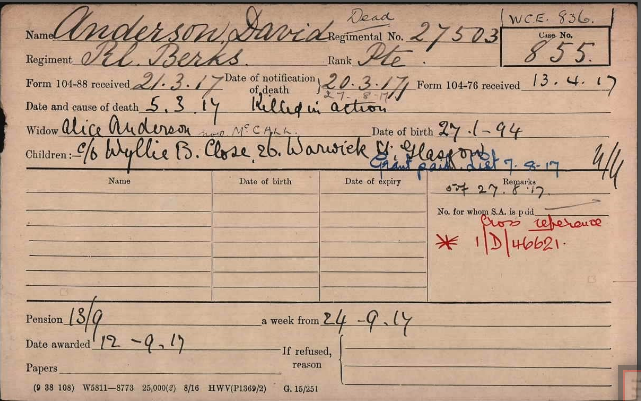 Dead
WCE. 836.
Name Anderson, David Regimental No. 27503
Case No. 855.
Regiment Rl. Berks. Rank Pte.
Form 104-88 received 21.3.17 Date of notification of death 20.3.17 Form 104-76 received 13.4.17
27.8.17
Date and cause of death 5.3.17 Killed in action
Widow Alice Anderson now McCALL Date of birth 27.1-94
Children:— c/o Wyllie B. Close, 26. Warwick St. Glasgow
7.9-17
Name Date of birth Date of expiry Remarks
27.8.17.
No. for whom S.A. is paid
Cross reference
* 1/D/46621.
Pension 13/9 a week from 24-9.17
Date awarded 12-9.17
If refused, reason
Papers
(9 38 108) W5811—8773 25,000(2) 8/16 HWV(P1369/2) G. 15/251